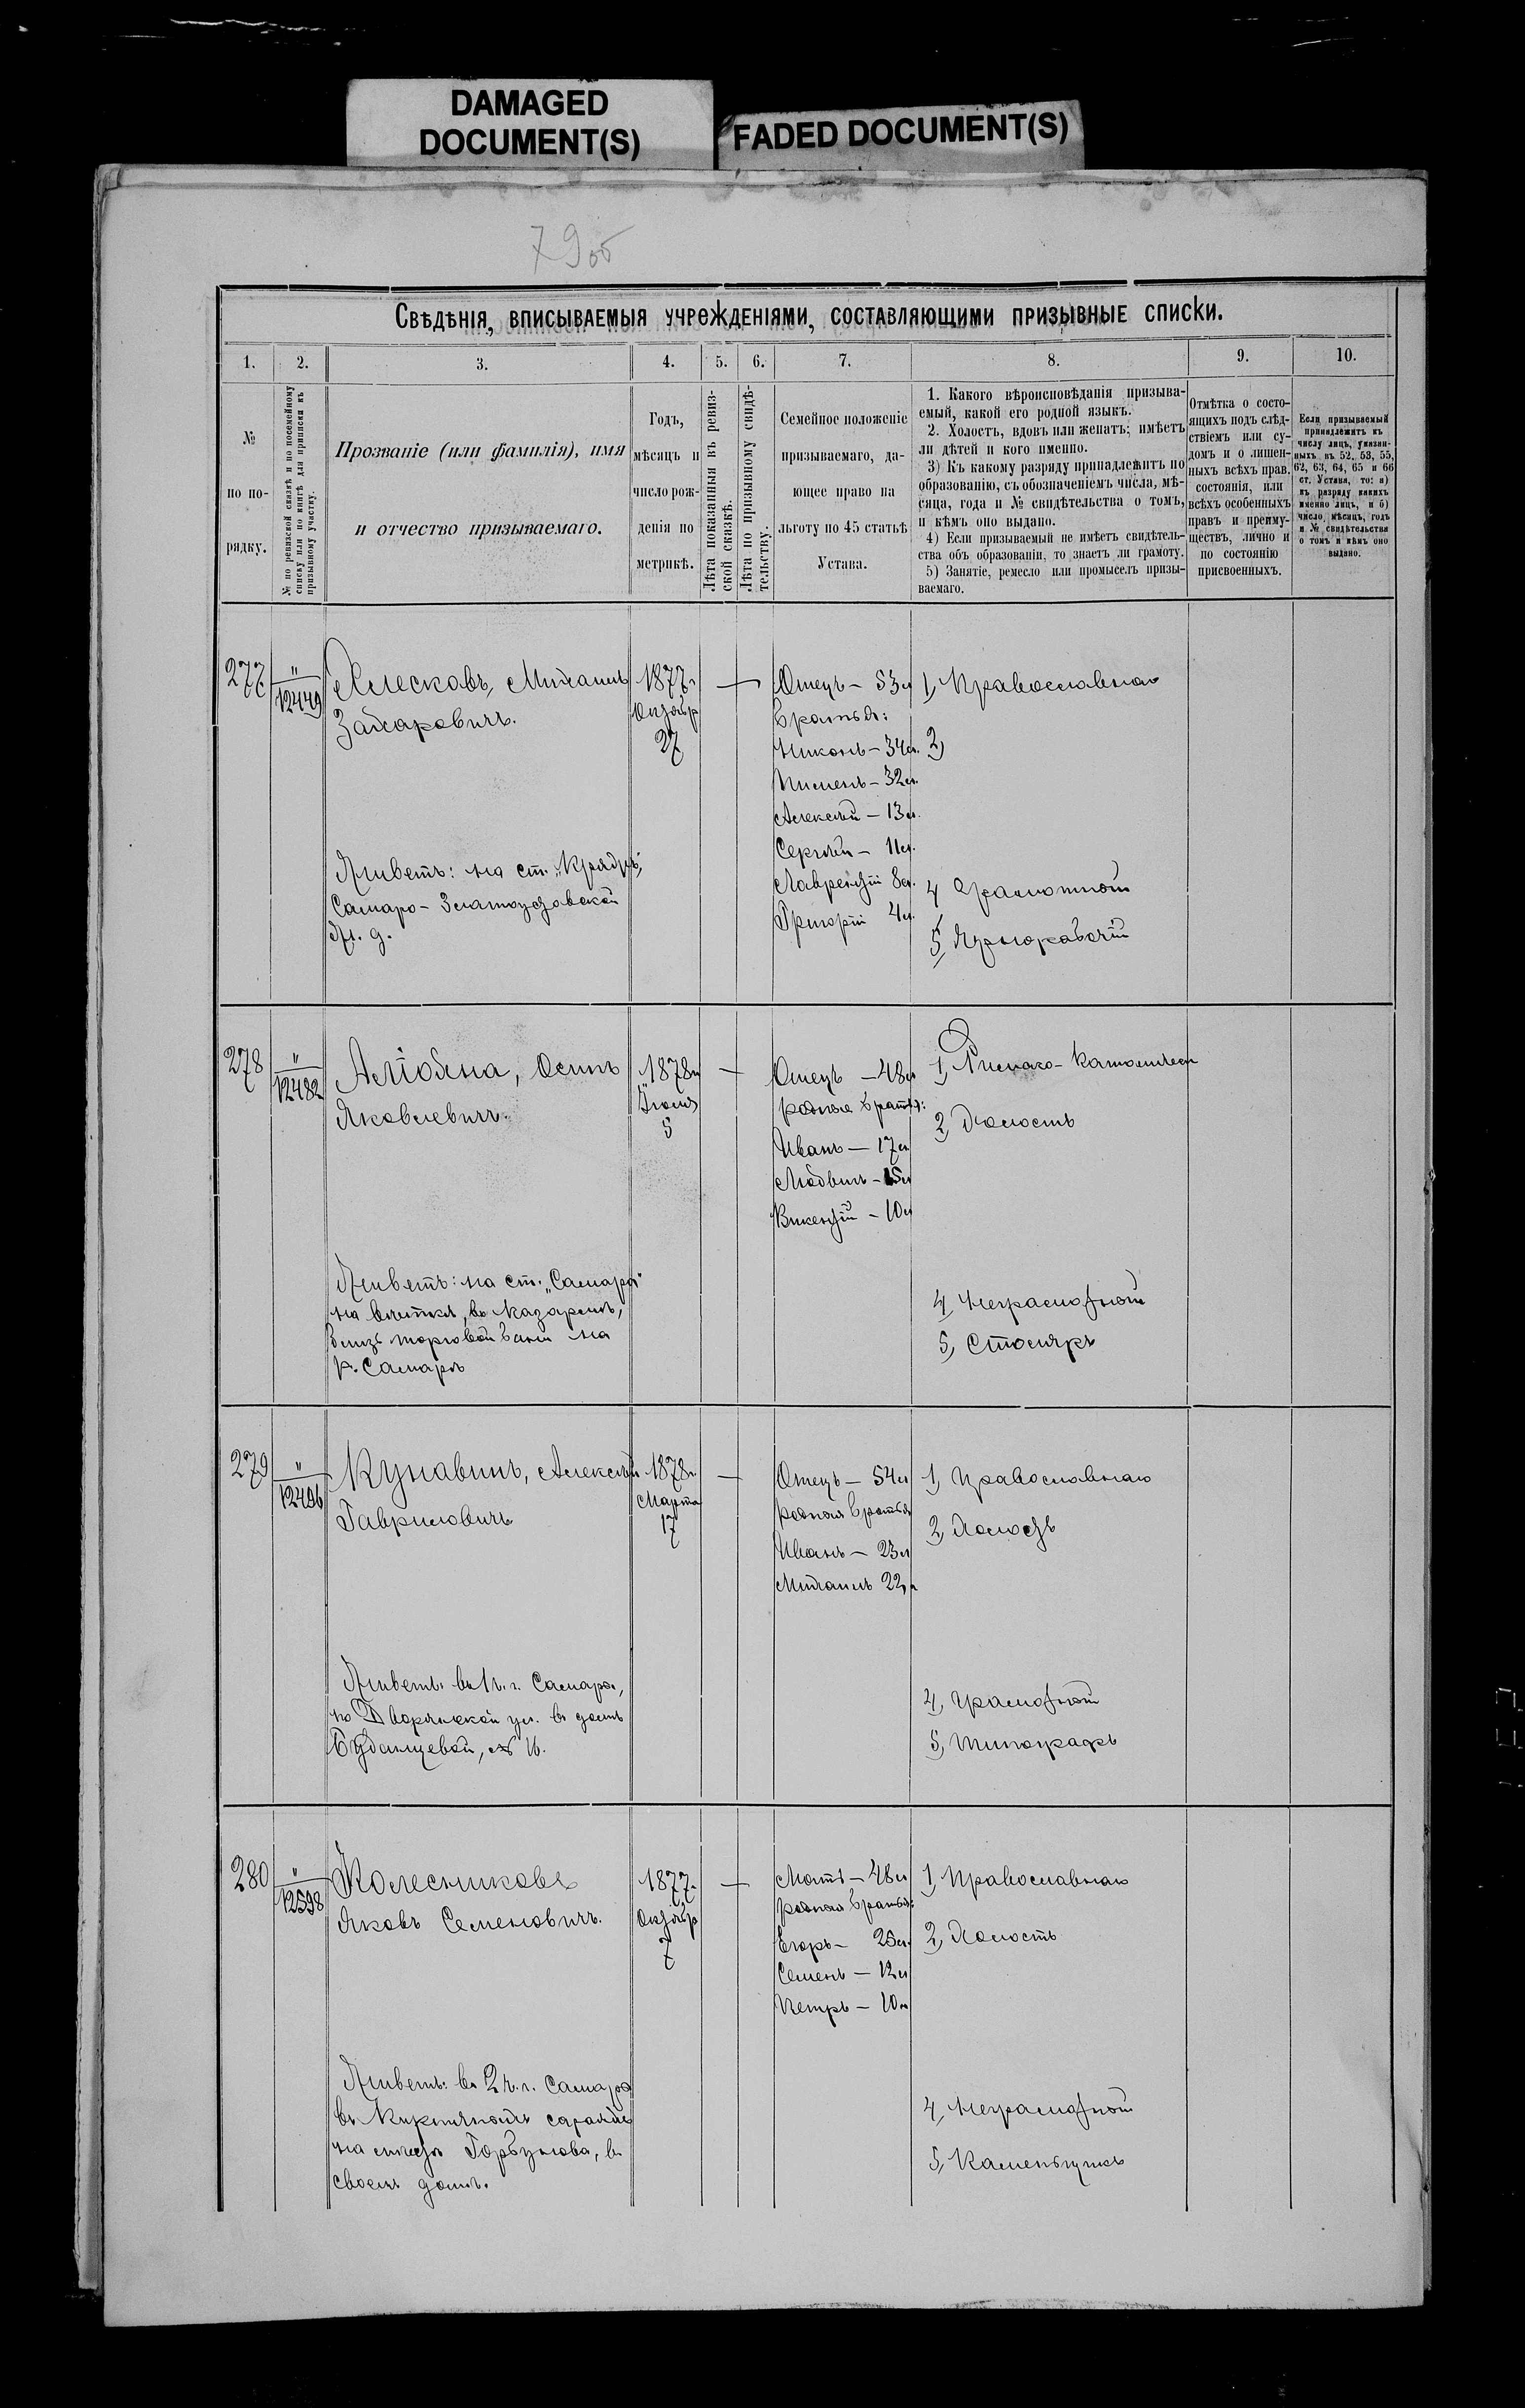 DAMAGED
DOCUMENT(S)
FADED DOCUMENT(S)
79об
Свѣдѣнія, вписываемыя учрежденіями, составляющими призывные списки.
1. 2. 3. 4. 5. 6. 7. 8. 9. 10.
№
по по-
рядку.
№ по ревизской сказкѣ и по посемейному
списку или по книгѣ для приписки къ
призывному участку.
Прозваніе (или фамилія), имя
и отчество призываемаго.
Годъ,
мѣсяцъ и
число рож-
денія по
метрикѣ.
Лѣта показанныя въ ревиз-
ской сказкѣ.
Лѣта по призывному свидѣ-
тельству.
Семейное положеніе
призываемаго, да-
ющее право на
льготу по 45 статьѣ
Устава.
1. Какого вѣроисповѣданія призыва-
емый, какой его родной языкъ.
2. Холостъ, вдовъ или женатъ; имѣетъ
ли дѣтей и кого именно.
3) Къ какому разряду принадлежитъ по
образованію, съ обозначеніемъ числа, мѣ-
сяца, года и № свидѣтельства о томъ,
и кѣмъ оно выдано.
4) Если призываемый не имѣетъ свидѣтель-
ства объ образованіи, то знаетъ ли грамоту.
5) Занятіе, ремесло или промыселъ призы-
ваемаго.
Отмѣтка о состо-
ящихъ подъ слѣд-
ствіемъ или су-
домъ и о лишен-
ныхъ всѣхъ прав.
состоянія, или
всѣхъ особенныхъ
правъ и преиму-
ществъ, лично и
по состоянію
присвоенныхъ.
Если призываемый
принадлежитъ къ
числу лицъ, указан-
ныхъ въ 52, 53, 55,
62, 63, 64, 65 и 66
ст. Устава, то: а)
къ разряду какихъ
именно лицъ, и б)
число, мѣсяцъ, годъ
и № свидѣтельства
о томъ и кѣмъ оно
выдано.
277
"
12449
Хлесковъ, Михаилъ
Захаровичъ.
Живетъ: на ст. „Кряжъ“,
Самаро-Златоустовской
ж. д.
1877г.
Октябр
27
Отецъ – 53л
братья:
Никонъ – 34л.
Пименъ – 32л.
Алексѣй – 13л.
Сергѣй – 11л.
Лаврентій 8л.
Григорій 4л.
1, Православнаго
2,
4 Грамотный
5, Чернорабочій
278
"
12482
Яковлевичъ.
Живетъ: на ст. „Самара“
р. Самарѣ
1878г
Іюля
5
Отецъ – 48л
родные братья:
Иванъ – 17л
Людвигъ – 15л
Викентій – 10л
1, Римско-Католическ
2, Холостъ
4, Неграмотный
5, Столяръ
279
"
12496
Кунавинъ, Алексѣй
Гавриловичъ
Живетъ: въ 1 ч. г. Самары,
по Дворянской ул. въ домѣ
1878г
Марта
17
Отецъ – 54л
родные братья
Иванъ – 23л
Михаилъ 22л
1, Православнаго
2, Холостъ
4, Грамотный
5, Типографъ
280
"
12598
Колесниковъ
Яковъ Семеновичъ.
Живетъ: въ 2 ч. г. Самары
въ Кирпичныхъ сараяхъ
Горбунова, въ
своемъ домѣ.
1877г.
Октябр
7
Мать – 48л
родные братья:
Егоръ – 25л.
Семенъ – 12л
Петръ – 10л
1, Православнаго
2, Холостъ
4, Неграмотный
5, Каменьщикъ